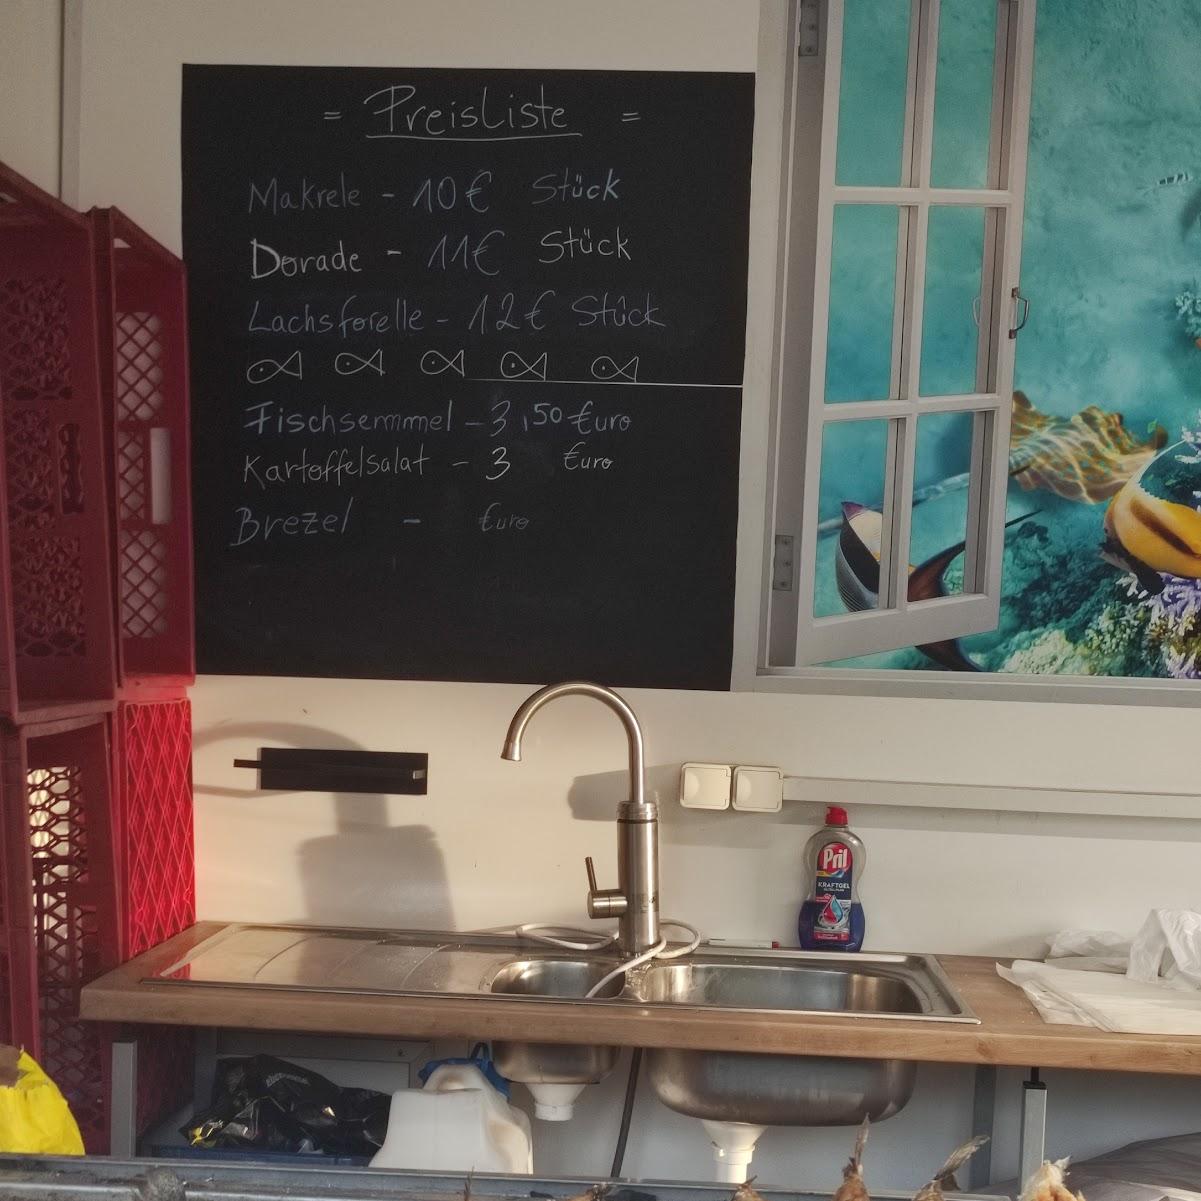 = Preisliste =
Makrele - 10€ Stück
Dorade - 11€ Stück
Lachsforelle - 12€ Stück
Fischsemmmel - 3,50 €uro
Kartoffelsalat - 3 €uro
Brezel - €uro
Pril
KRAFTGEL